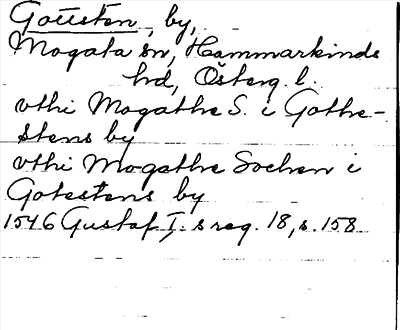 Gottsten, by,
Mogata sn, Hammarkinds
hd, Österg. l.
vthi Mogathe S. i Gothe-
stens by
vthi Mogathe Sochen i
Gotestens by
1546 Gustaf I:s reg. 18, s. 158